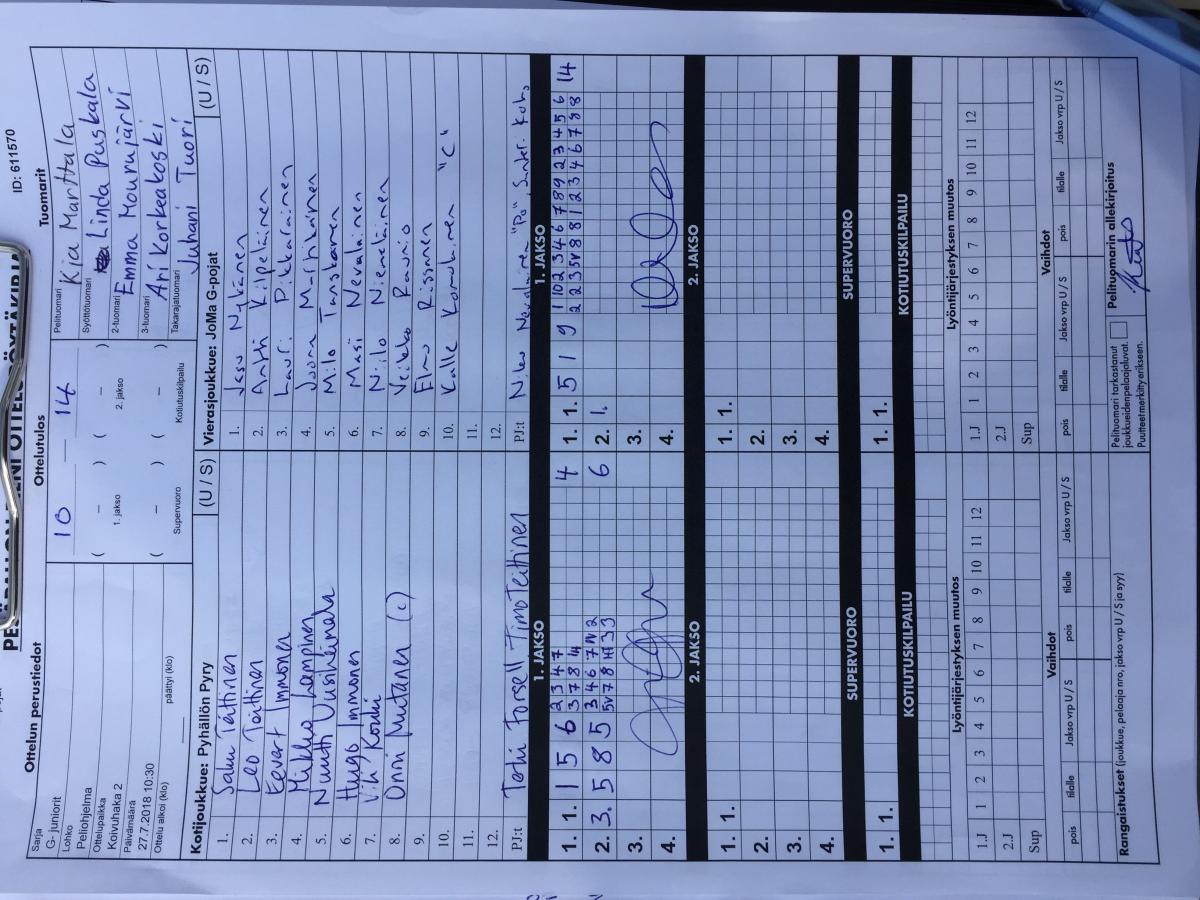 ID: 611570
Ottelun perustiedot
Ottelutulos
Tuomarit
Sarja
G- juniorit
Lohko
Peliohjelma
Ottelupaikka
Koivuhaka 2
Päivämäärä
27.7.2018 10:30
Ottelu alkoi (klo)
päättyi (klo)
10 14
( – ) ( – )
1. jakso 2. jakso
( – ) ( – )
Supervuoro Kotiutuskilpailu
Pelituomari Kia Marttala
Syöttötuomari Linda Puskala
2-tuomari Emma Mourujärvi
3-tuomari Ari Korkeakoski
Takarajatuomari Juhani Tuori
Kotijoukkue: Pyhällön Pyry (U / S)
1. Saku Tättinen
2. Leo Teittinen
3. Eevart Immonen
4. Mikko Lempinen
5. Nuutti Uusiheimala
6. Hugo Immonen
7. Vili Kouki
8. Onni Muutanen (c)
9.
10.
11.
12.
PJ:t Toshi Forsell Timo Teittinen
Vierasjoukkue: JoMa G-pojat (U / S)
1. Jesu Nykänen
2. Antti Kilpeläinen
3. Lauri Pikkarainen
4. Joona Martikainen
5. Milo Tanskanen
6. Masi Nevalainen
7. Niilo Niemeläinen
8. Veikko Raunio
9. Elmo Rissanen
10. Kalle Komulainen "C"
11.
12.
PJ:t Niko Nevalainen "Po",
1. JAKSO 1. JAKSO
1. 1. 1 5 6 2 3 4 7 4
3 7 8 14
2. 3. 5 8 5 3 4 6 7 6
3.
4.
1. 1. 5 1 9 1 10 2 3 4 6 7 8 9 2 3 4 5 6 14
2 2 3 5V 8 8 1 2 3 4 6 7 8 8
2. 1.
3.
4.
2. JAKSO 2. JAKSO
1. 1. 1. 1.
2. 2.
3. 3.
4. 4.
SUPERVUORO SUPERVUORO
1. 1. 1. 1.
KOTIUTUSKILPAILU KOTIUTUSKILPAILU
Lyöntijärjestyksen muutos Lyöntijärjestyksen muutos
1.J 1 2 3 4 5 6 7 8 9 10 11 12 1.J 1 2 3 4 5 6 7 8 9 10 11 12
2.J 2.J
Sup Sup
Vaihdot Vaihdot
pois tilalle Jakso vrp U / S pois tilalle Jakso vrp U / S pois tilalle Jakso vrp U / S pois tilalle Jakso vrp U / S
Rangaistukset (joukkue, pelaaja nro, jakso vrp U / S ja syy)
Pelituomari tarkastanut
joukkueiden pelaajaluvat.
Puutteet merkitty erikseen.
Pelituomarin allekirjoitus